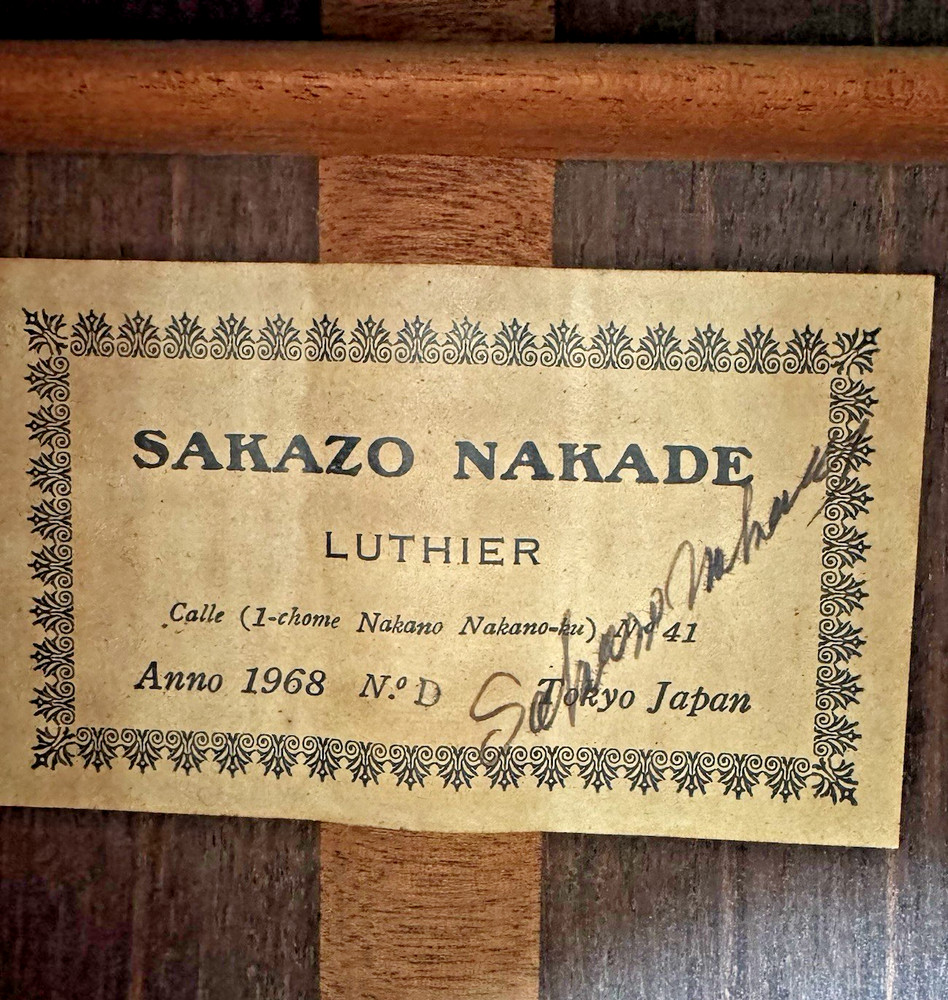 SAKAZO NAKADE
LUTHIER
Calle (1-chome Nakano Nakano-ku) Nº 41
Anno 1968 N.º D Tokyo Japan
Sakazo Nakade